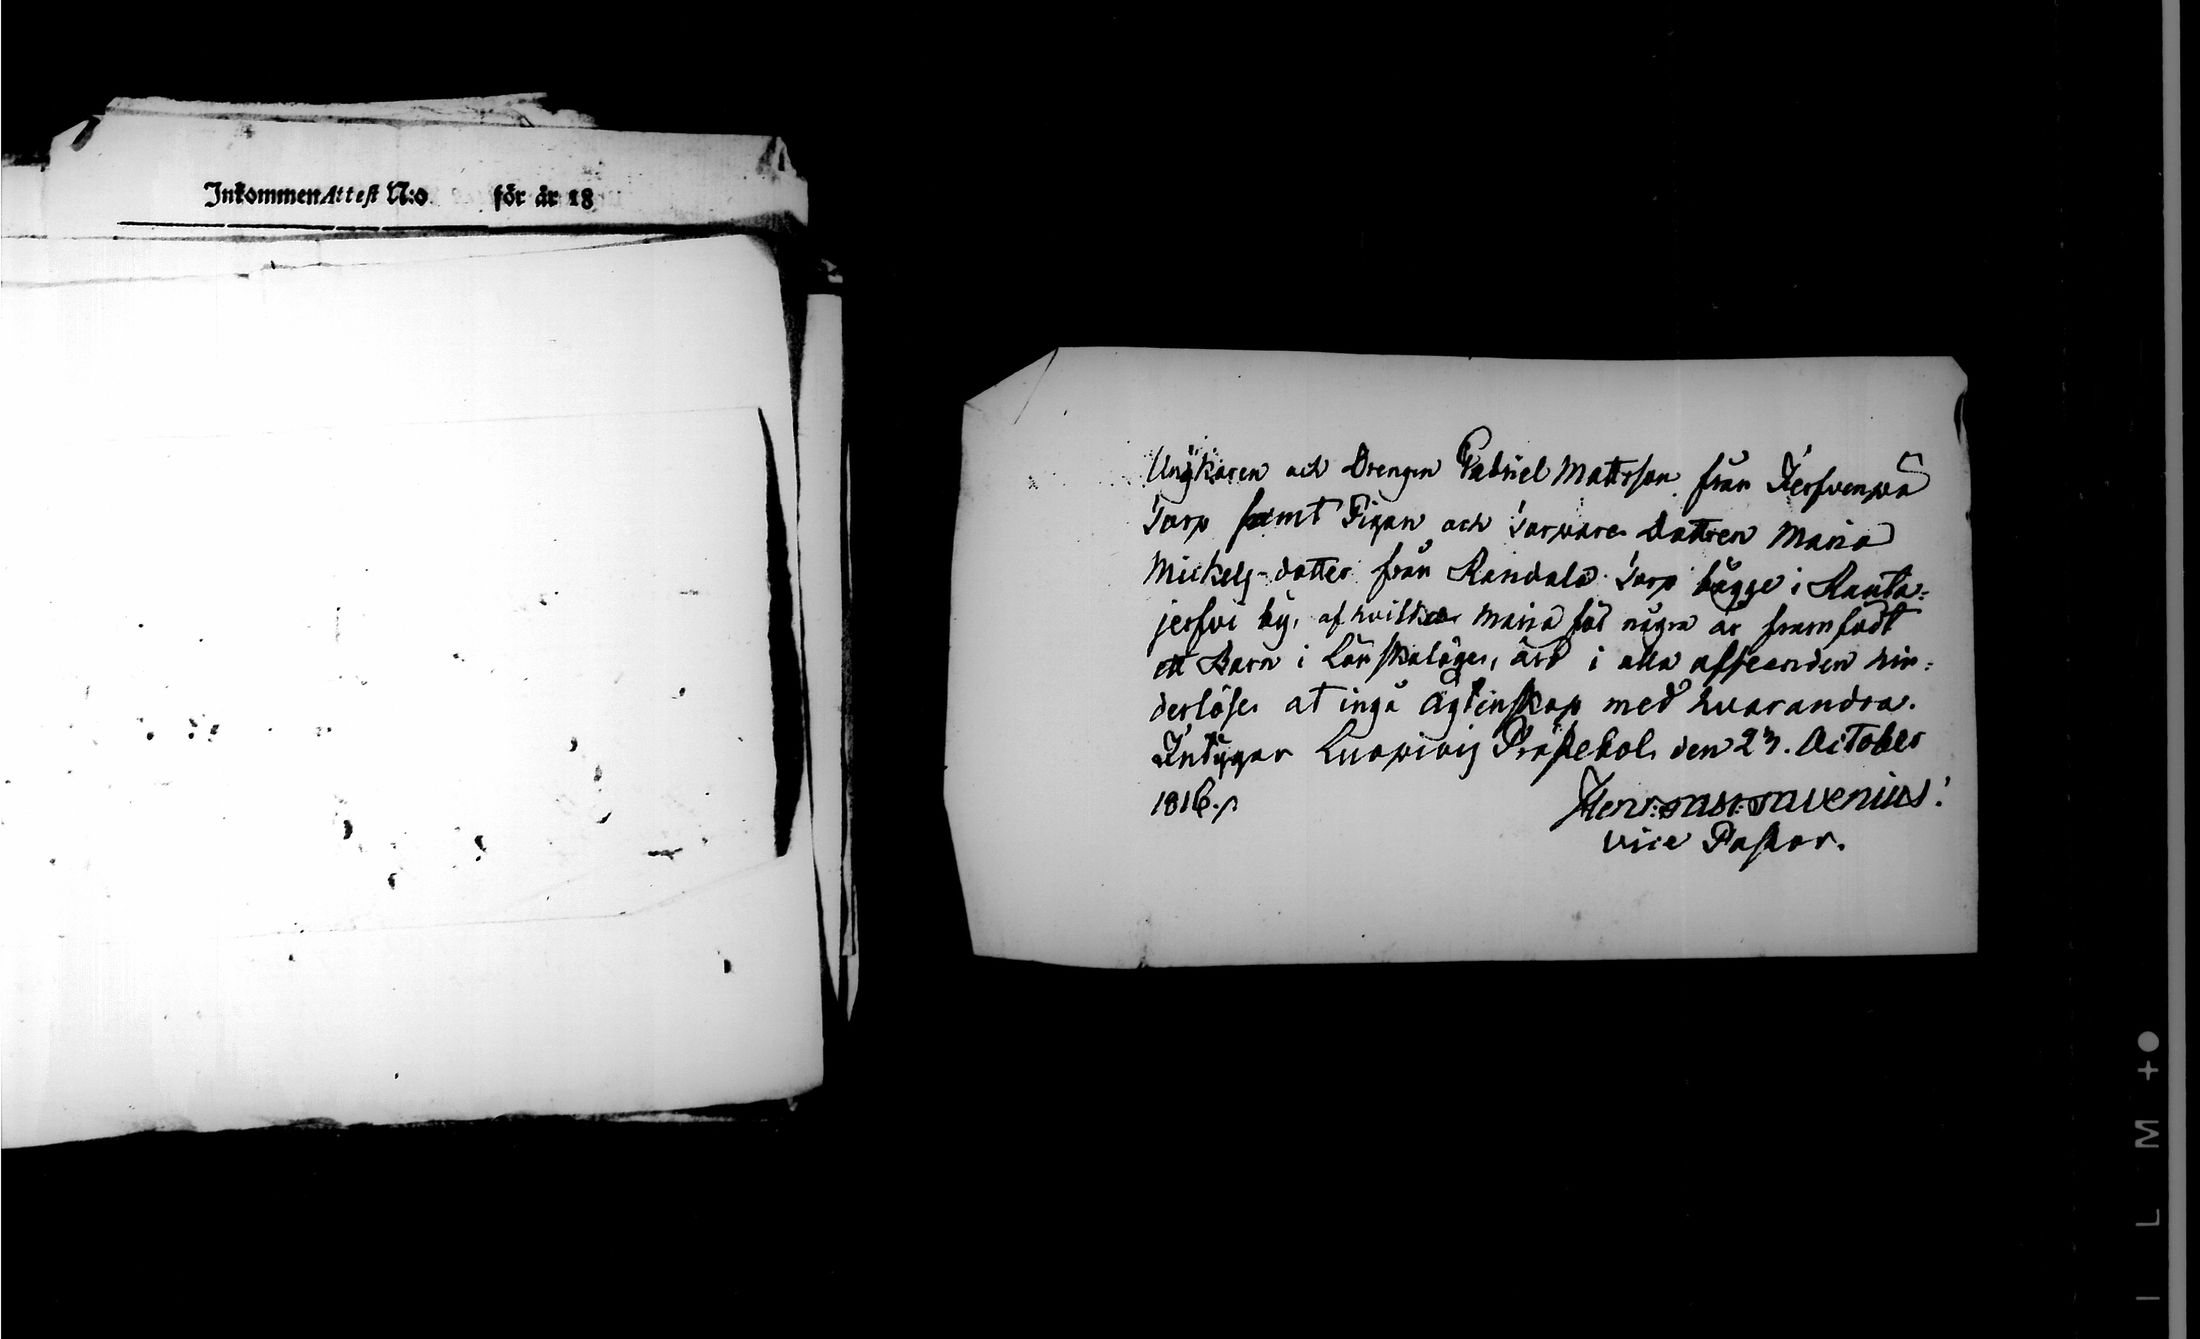 Inkommen Attest N:o för år 18
Ungkaren och Drengen Gabriel Mattsson från Jerfvenpä
Torp samt Pigan och Torpare Dottren Maria
Mickels-dotter från Randala Torp bägge i Rauta-
jerfvi by, af hvilka Maria för några år framfödt
ett Barn i Lönskaläger, äro i alla afseenden hin-
derlöse at ingå Ägtenskap med hvarandra.
Intygar Luopiois Prästebol den 23. October
1816.
Henr: Gust: Savenius:
vice Pastor.
FILM